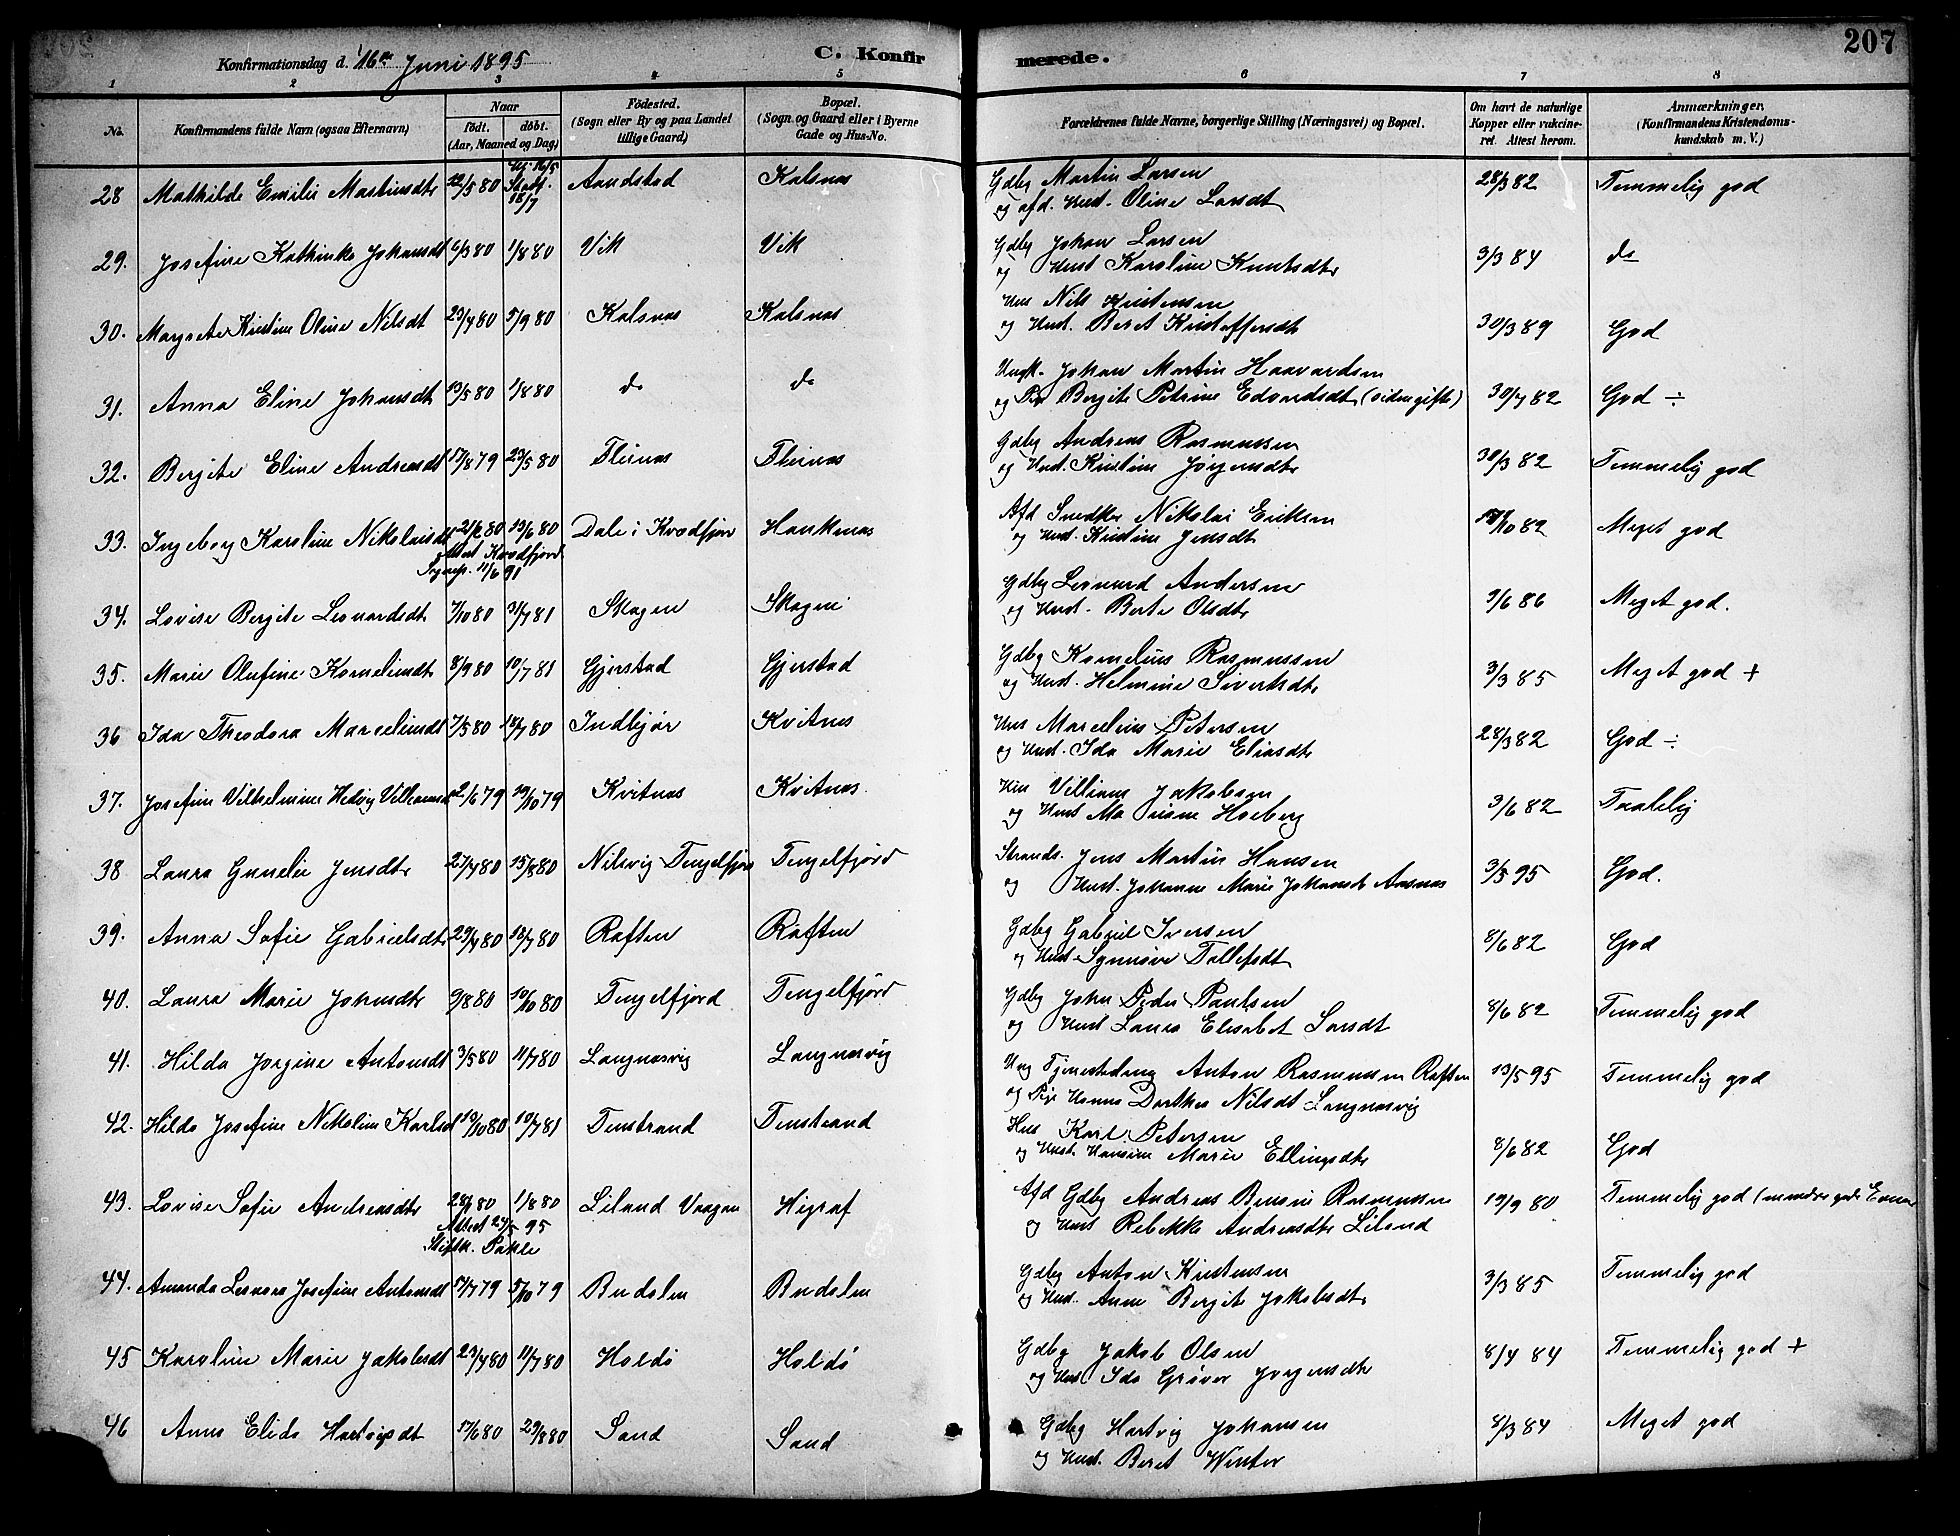 Konfirmationsdag d. 16de Juni 1895 C. Konfirmerede. 207
1 2 3 4 5 6 7 8
No. Konfirmandens fulde Navn (ogsaa Efternavn) Naar født. døbt. (Aar, Maaned og Dag) Födested. (Sogn eller By og paa Landet tillige Gaard) Bopæl. (Sogn og Gaard eller i Byerne Gade og Hus-No. Forældrenes fulde Navne, borgerlige Stilling (Næringsvei) og Bopæl. Om havt de naturlige Kopper eller vakcineret. Attest herom. Anmærkninger. (Konfirmandens Kristendomskundskab m. V.)
28 Mathilde Emilie Martinsdtr 12/5 80 Hj. 16/5 Stadf. 18/7 Aandstad Kalsnæs Gdbg Martin Larsen 28/3 82 Temmelig god
og afd. Hust. Oline Larsdt
29. Josefine Kathinka Johansdt 6/3 80 1/8 80 Vik Vik Gdbg Johan Larsen 3/3 84 do
og Hust Karoline Knutsdtr
30. Margrete Kristine Oline Nilsdt 23/4 80 5/9 80 Kalsnæs Kalsnæs Hus Nils Kristensen 30/3 89 God
og Hust. Beret Kristoffersdt
31. Anna Eline Johansdt 13/5 80 1/8 80 do do Ungk. Johan Martin Haavardsen 30/7 82 God ÷
og Pige Bergite Petrine Edvardsdt (siden gifte)
32. Bergite Eline Andreasdt 17/8 79 23/5 80 Fleinæs Fleinæs Gdbg Andreas Rasmussen 30/3 82 Temmelig god
og Hust. Kristine Jørgensdtr
33. Ingeborg Karoline Nikolaisdt 21/2 80 13/6 80 Dale i Kvædfjord Haukenæs Afd Snedker Nikolai Eriksen 17/10 82 Meget god
Attest Kvædfjord
Sognep. 11/6 91
og Hust. Kristine Jensdt
34. Lovise Bergite Leonardsdt 7/10 80 31/7 81 Skagen Skagen Gdbg Leonard Andersen 3/6 86 Meget god.
og Hust. Berte Olsdtr
35. Marie Olufine Korneliusdt 8/9 80 10/7 81 Gjerstad Gjerstad Gdbg Kornelius Rasmussen 3/3 85 Meget god +
og Hust. Helmine Sivertsdtr
36 Ida Theodora Marceliusdt 7/5 80 18/7 80 Indbjør Kvitnæs Hus Marcelius Petersen 28/3 82 God ÷
og Hust. Ida Marie Eliasdtr
37. Josefine Vilhelmine Hedvig Villiamsdt 12/6 79 19/10 79 Kvitnæs Kvitnæs. Hus Villiam Jakobsen 3/6 82 Taalelig
og Hust Mariane Hveberg
38 Laura Gunelie Jensdtr 27/4 80 15/8 80 Nilsvig Tengelfjord Tengelfjord Strands. Jens Martin Hansen 3/5 95 God.
og Hust. Johanne Marie Johansdt Aasnæs
39. Anna Sofie Gabrielsdtr 29/4 80 18/7 80 Raften Raften Gdbg Gabriel Iversen 8/6 82 God
og Hust Synnøve Tollefsdt
40. Laura Marie Johnsdtr 9/8 80 10/10 80 Tengelfjord Tengelfjord Gdbg John Peder Paulsen 8/6 82 Temmelig god
og Hust Laura Elisabet Larsdt
41. Hilda Jørgine Antonsdt 3/5 80 11/7 80 Langnæsvig Langnæsvig Ung Tjenestedreng Anton Rasmussen Raften 13/5 95 Temmelig god
og Pige Hanna Dorthea Nilsdt Langnæsvig
42. Hilda Josefine Nikoline Karlsdt 19/10 80 10/7 81 Tenstrand Tenstrand Hus Karl Petersen 8/6 82 God
og Hust. Hansine Marie Ellingsdtr
43. Lovise Sofie Andreasdtr 80 1/8 80 Liland Vaagan Higraf Afd Gdbg Andreas Benoni Rasmussen 19/9 80 Temmelig god (mindre gode Evner
Attest 23/5 95
Stiftsk.
og Hust Rebekka Andreasdtr Liland
44. Amanda Leonora Josefine Antonsdt 17/7 79 5/10 79 Budalen Budalen Gdbg Anton Kristensen 3/3 85 Temmelig god
og Hust. Anne Bergite Jakobsdtr
45 Karoline Marie Jakobsdt 23/4 80 11/7 80 Holdø Holdø Gdbg Jakob Olsen 8/4 84 Temmelig god +
og Hust Ida Grøver Jørgensdtr
46 Anna Elida Hartvigsdt 17/6 80 29/8 80 Sand Sand Gdbg Hartvig Johansen 8/3 84 Meget god
og Hust. Beret Winter